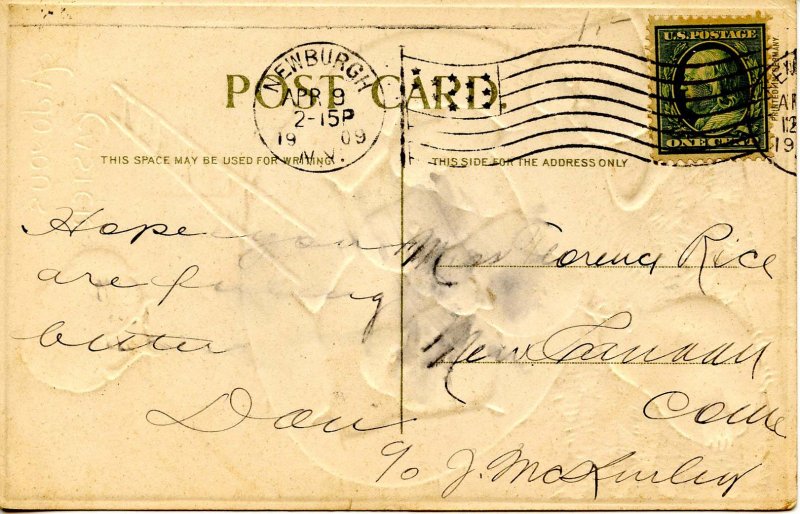 POST CARD.
NEWBURGH
APR 9
2-15P
19 09
N.Y.
U.S. POSTAGE
ONE CENT
PRINTED IN GERMANY
THIS SPACE MAY BE USED FOR WRITING
THIS SIDE FOR THE ADDRESS ONLY
Hope you
are feeling
better
Dan
Miss Florence Rice
New Canaan
Conn
c/o J. McKinley